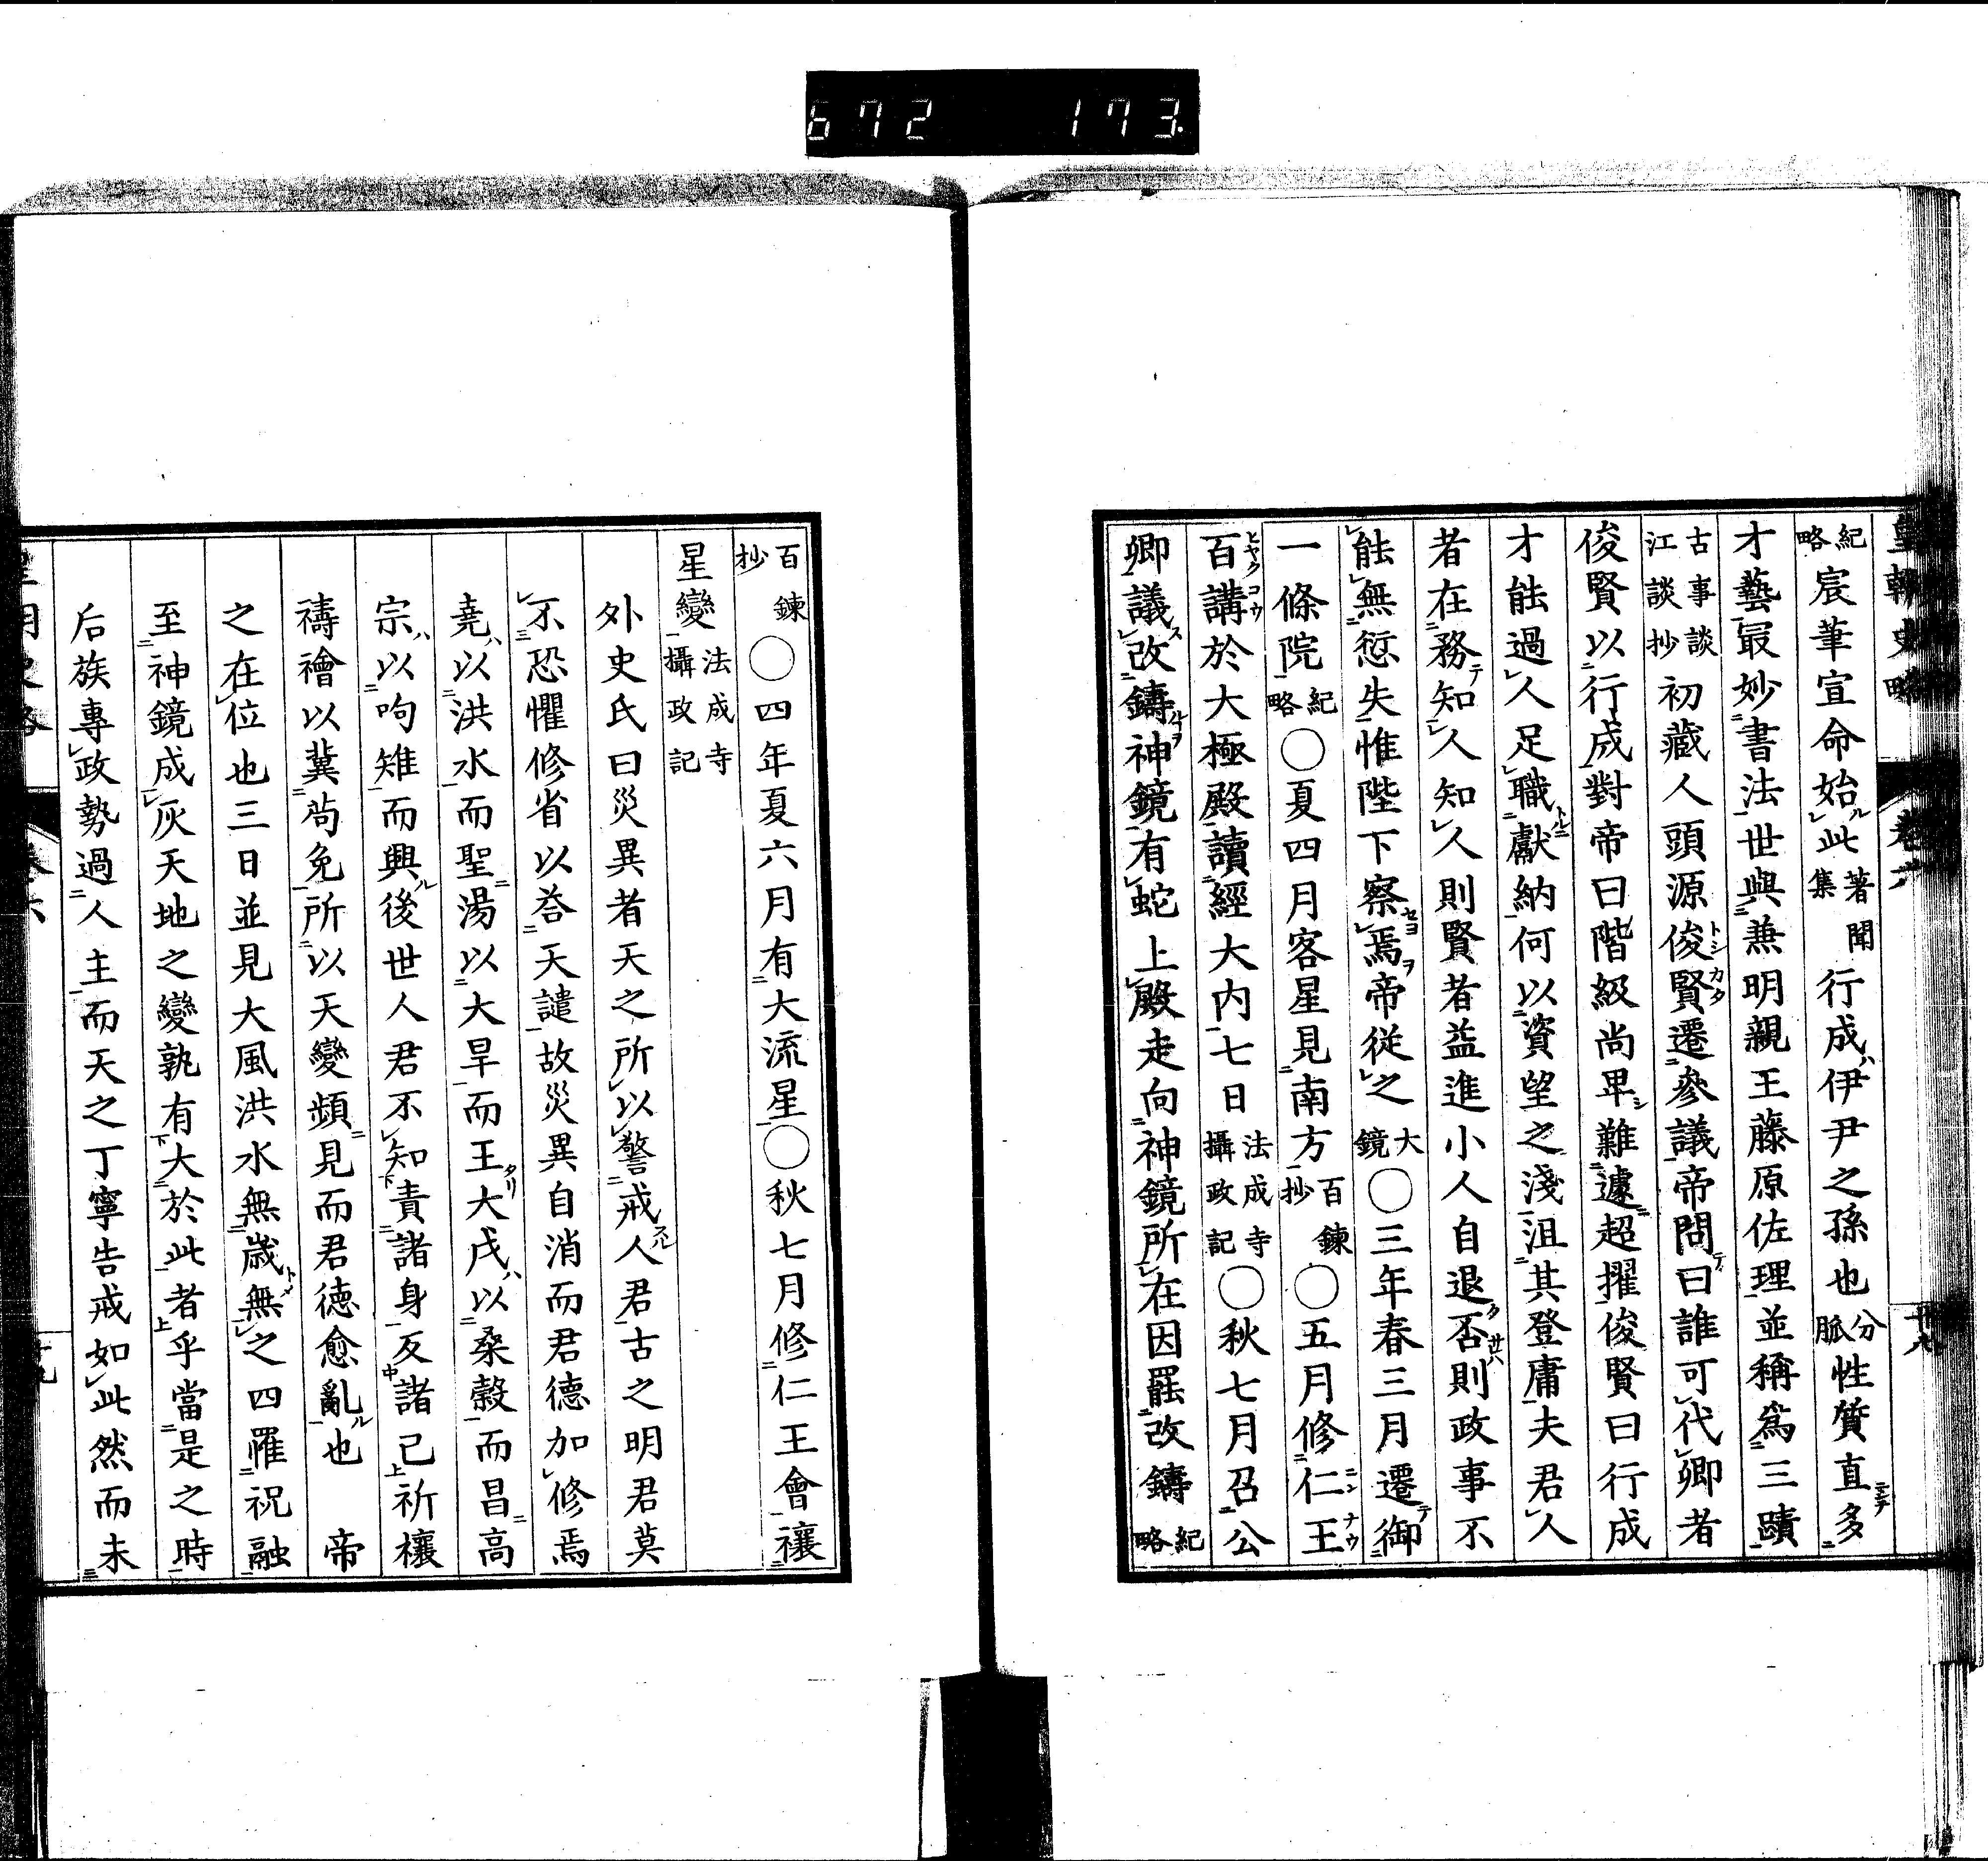 672 173
皇朝史略 卷六 十八
紀略宸筆宣命始此著聞集行成伊尹之孫也分脈性質直多
才藝最妙書法世與兼明親王藤原佐理並稱爲三蹟
古事談江談抄初藏人頭源俊賢遷參議帝問曰誰可代卿者
俊賢以行成對帝曰階級尚卑難遽超擢俊賢曰行成
才能過人足職獻納何以資望之淺沮其登庸夫君人
者在務知人知人則賢者益進小人自退否則政事不
能無愆失惟陛下察焉帝從之大鏡〇三年春三月遷御
一條院紀略〇夏四月客星見南方百鍊抄〇五月修仁王
百講於大極殿讀經大內七日法成寺攝政記〇秋七月召公
卿議改鑄神鏡有蛇上殿走向神鏡所在因罷改鑄紀略
百鍊抄〇四年夏六月有大流星〇秋七月修仁王會禳
星變法成寺攝政記
外史氏曰災異者天之所以警戒人君古之明君莫
不恐懼修省以荅天譴故災異自消而君德加修焉
堯以洪水而聖湯以大旱而王大戊以桑穀而昌高
宗以呴雉而興後世人君不知責諸身反諸己祈禳
禱禬以冀苟免所以天變頻見而君德愈亂也 帝
之在位也三日並見大風洪水無歲無之四罹祝融
至神鏡成灰天地之變孰有大於此者乎當是之時
后族專政勢過人主而天之丁寧告戒如此然而未